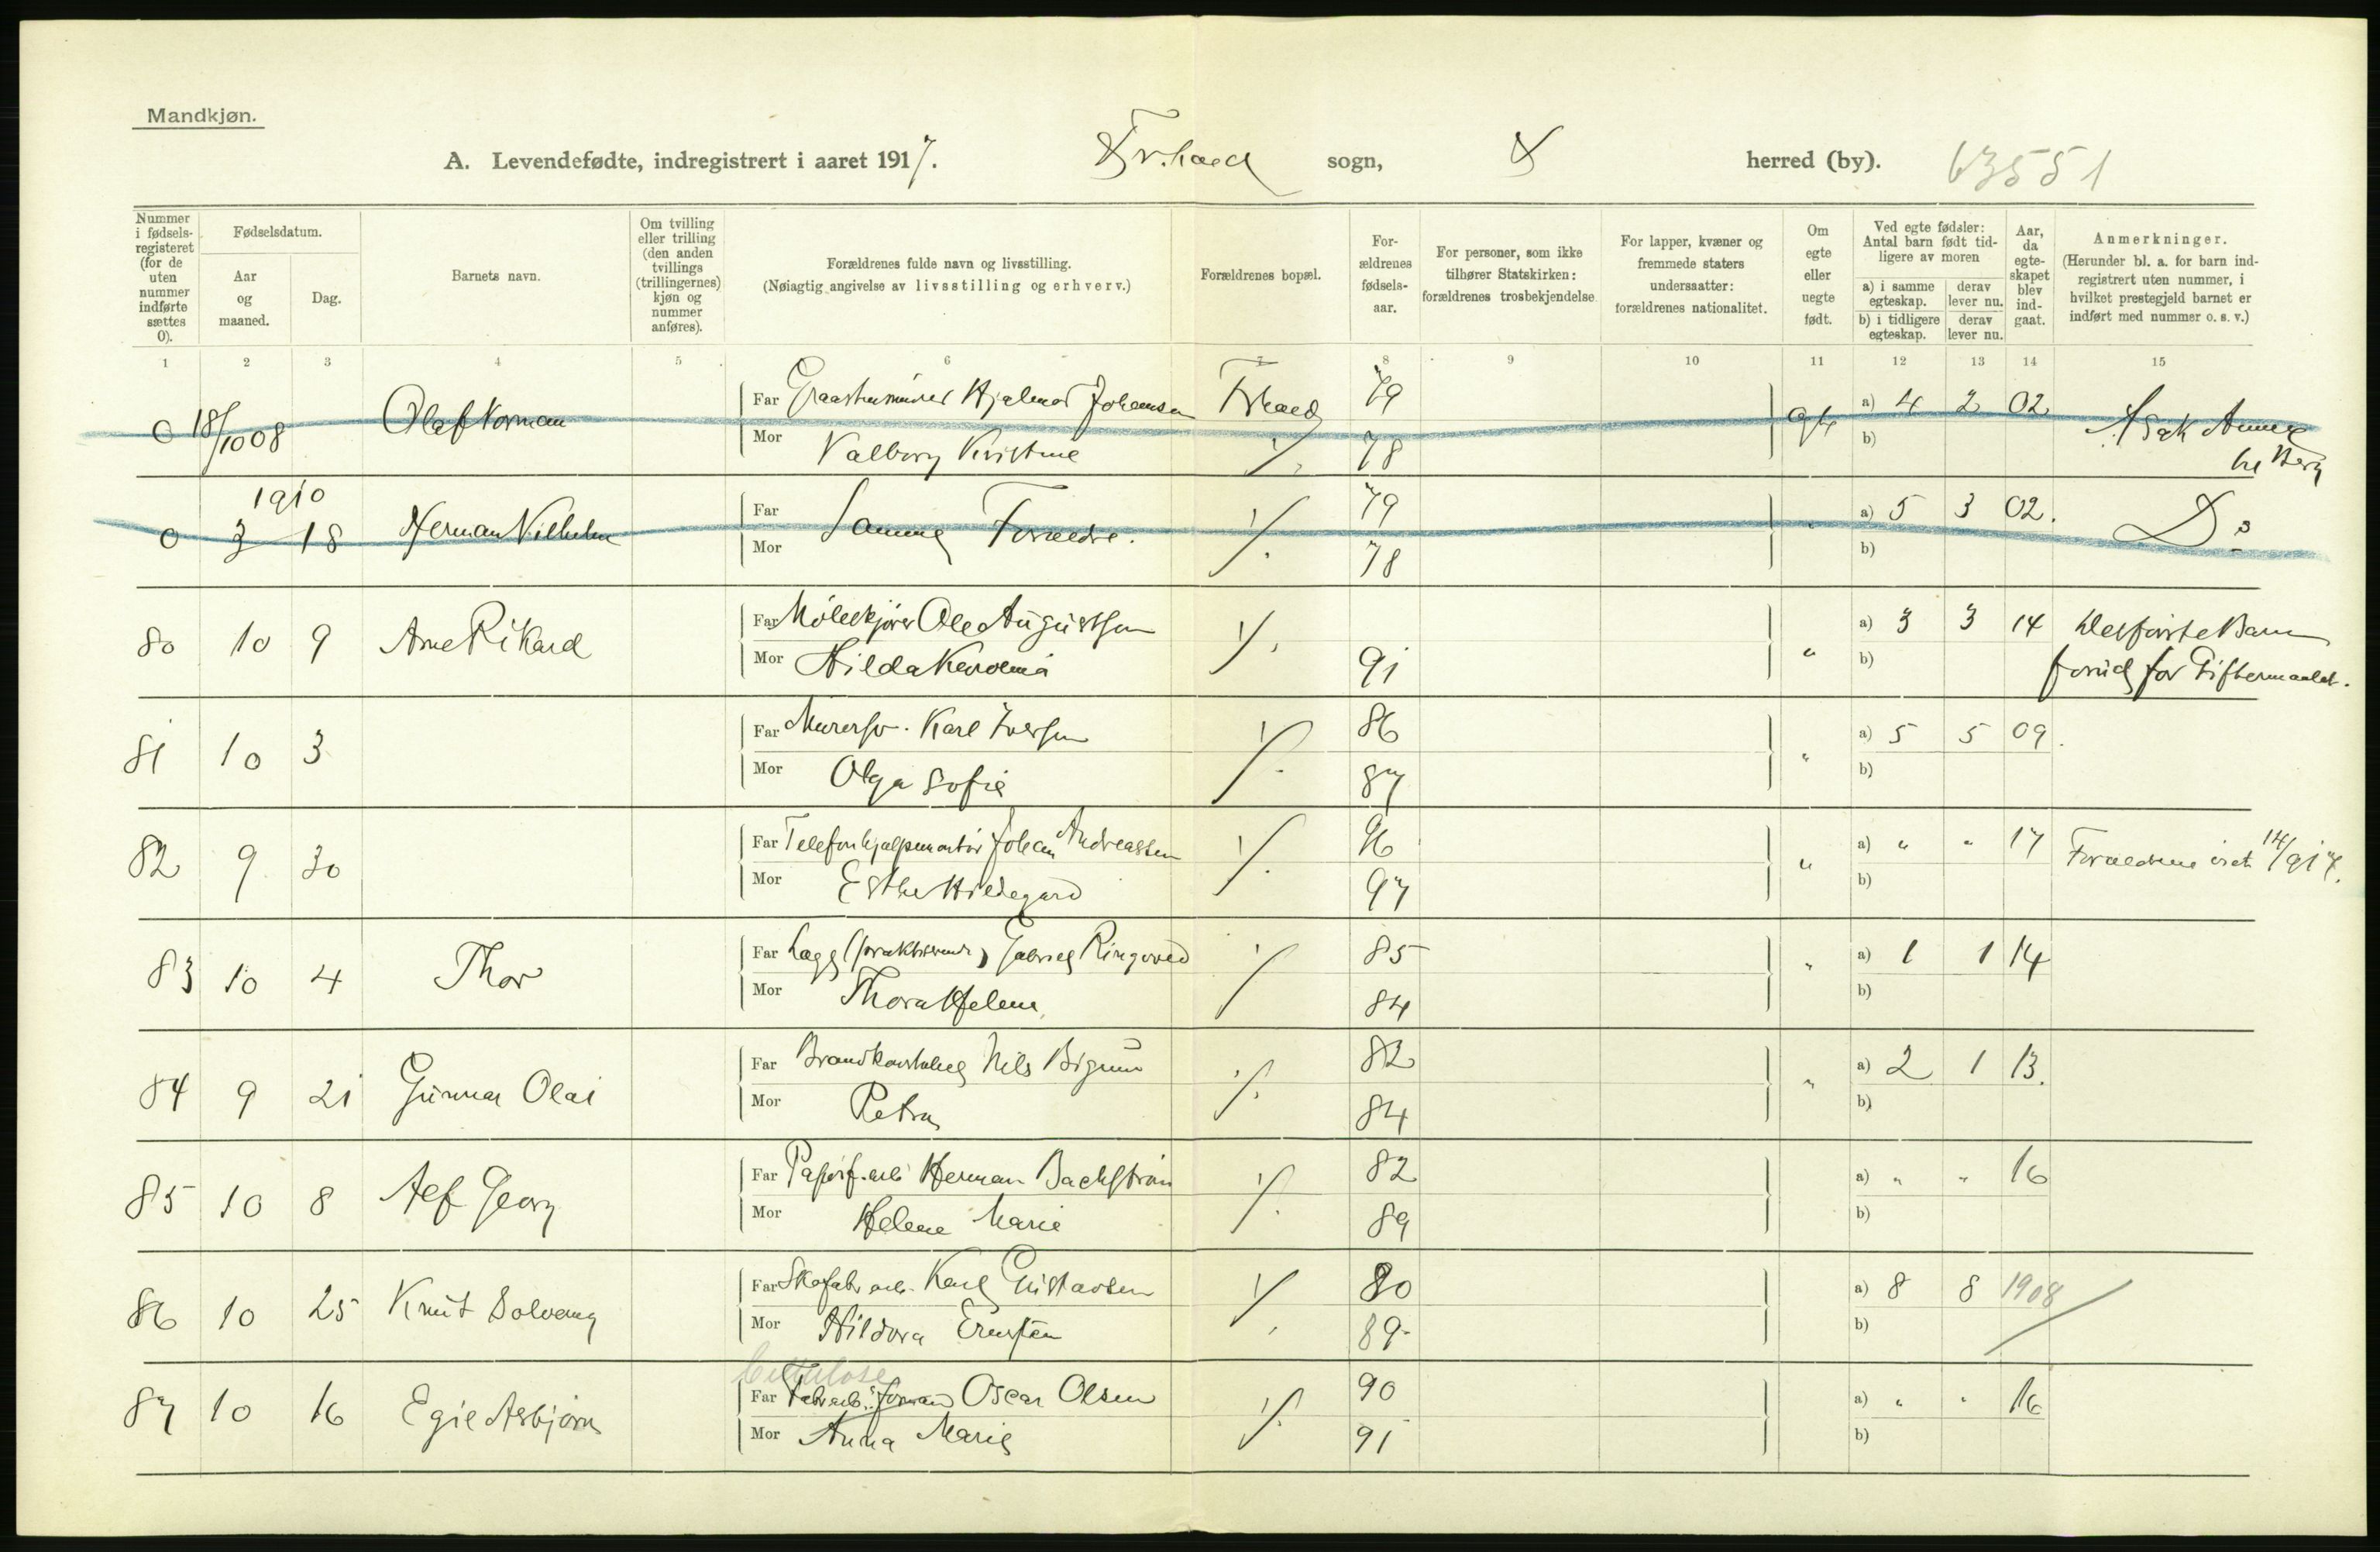 Mandkjøn.
A. Levendefødte, indregistrert i aaret 1917. Fr.hald sogn, herred (by). 63551
Nummer i fødsels-registeret (for de uten nummer indførte sættes 0).
Fødselsdatum.
Aar og maaned.
Dag.
Barnets navn.
Om tvilling eller trilling (den anden tvillings (trillingernes) kjøn og nummer anføres).
Forældrenes fulde navn og livsstilling.
(Nøiagtig angivelse av livsstilling og erhverv.)
Forældrenes bopæl.
For-ældrenes fødsels-aar.
For personer, som ikke tilhører Statskirken: forældrenes trosbekjendelse.
For lapper, kvæner og fremmede staters undersaatter: forældrenes nationalitet.
Om egte eller uegte født.
Ved egte fødsler: Antal barn født tid-ligere av moren
a) i samme egteskap. derav lever nu.
b) i tidligere egteskap. derav lever nu.
Aar, da egte-skapet blev ind-gaat.
Anmerkninger.
(Herunder bl. a. for barn ind-registrert uten nummer, i hvilket prestegjeld barnet er indført med nummer o. s. v.)
1 2 3 4 5 6 7 8 9 10 11 12 13 14 15
0 18/10 08 Olaf Norman Far Hjalmar Johansen Frhald 79 a) 4 2 02
Mor Valborg Kristine 78 b)
1910
0 3 18 Herman Vilhelm Far Mor Samme Forældre. 79 78 a) 5 3 02. b) Do
80 10 9 Arne Rikard Far Ole Augustsen a) 3 3 14 Det første Barn
Mor Hilda Karolina 91 " b) forud for Giftermaalet.
81 10 3 Far Murersv. Karl Iversen 86 a) 5 5 09.
Mor Olga Sofie 87 " b)
82 9 30 Far Telefonhjælpemontør Johan Andreassen 96 a) " " 17 Forældrene viet 14/9 17.
Mor Esther Hildegard 97 " b)
83 10 4 Thor Far Læge (praktiserende) Gabriel Ringvold 85 a) 1 1 14
Mor Thora Helene 84 " b)
84 9 21 Gunnar Olai Far Brandkonstabel Nils 82 a) 2 1 13.
Mor Petra 84 " b)
85 10 8 Alf Georg Far Papirf. arb Herman Backstrøm 82 a) " " 16
Mor Helene Marie 89 b)
86 10 25 Knut Solvang Far Skofabr arb. Karl Gustavsen 80 a) 8 8 1908
Mor Hildora 89 b)
Cellulose
87 10 16 Egil Asbjørn Far Fabr arb. formand Oscar Olsen 90 a) " " 16
Mor Anna Marie 91 b)